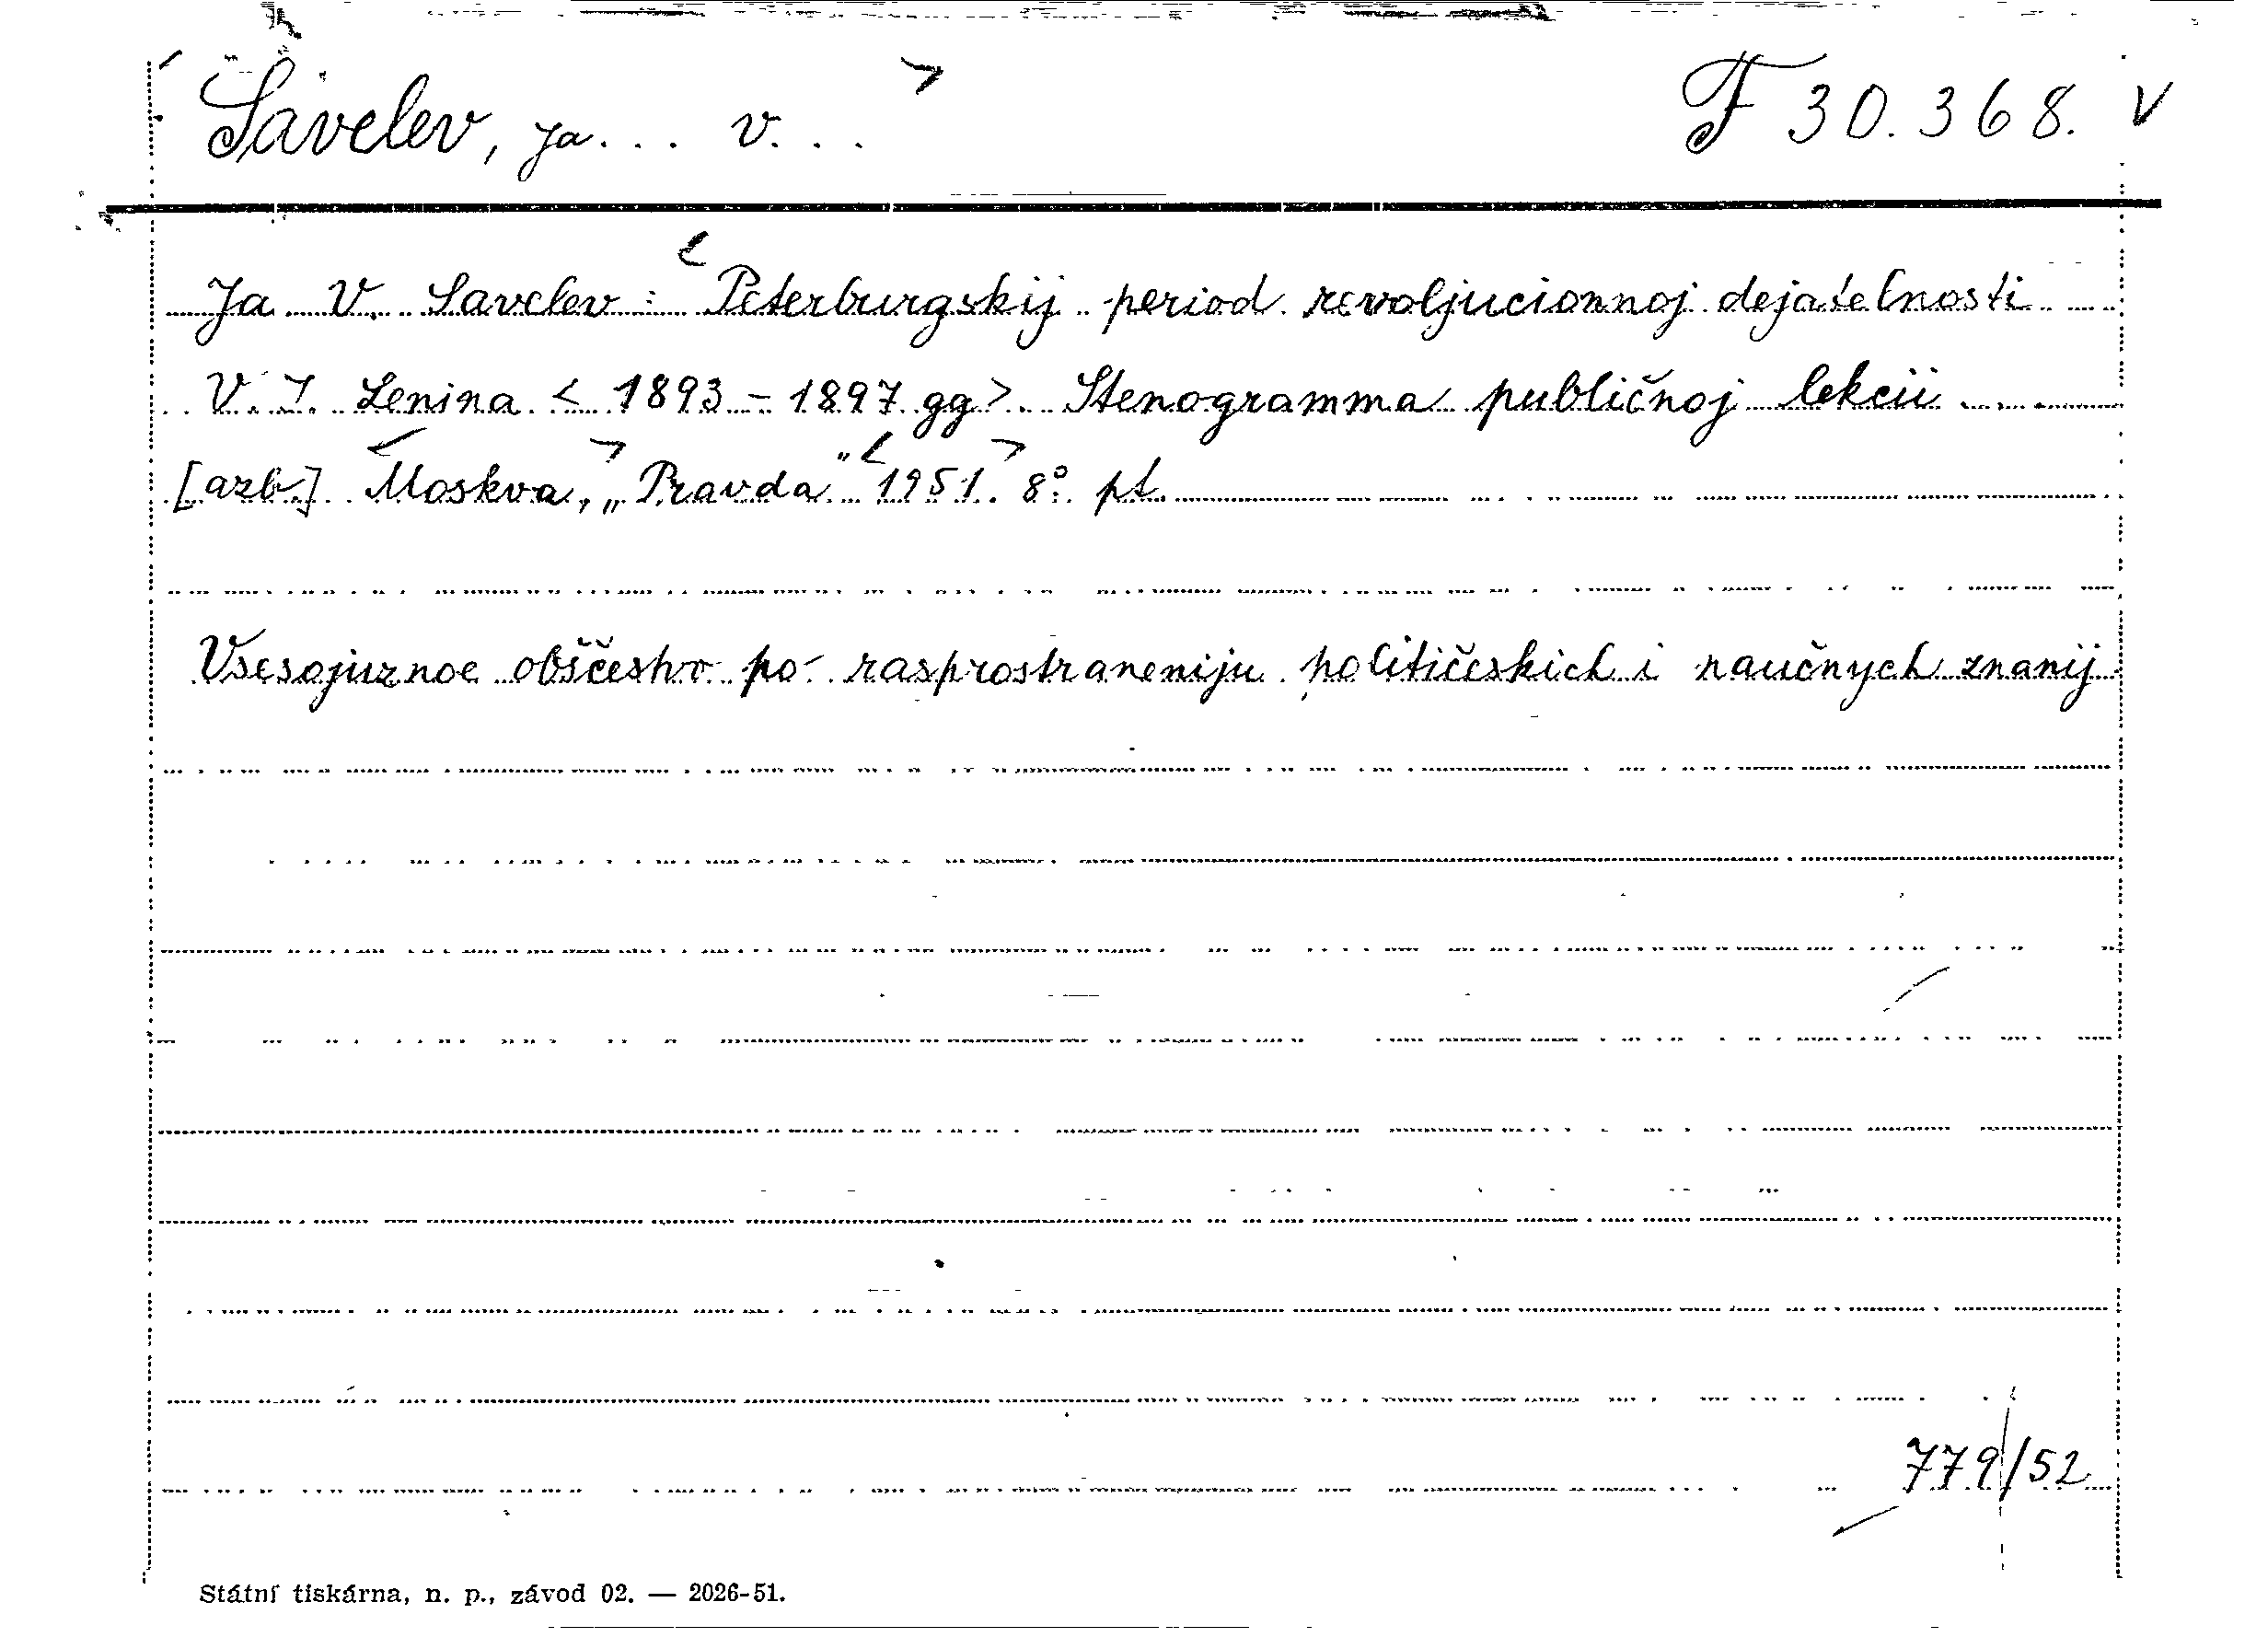 Savelev, Ja... V...
F 30.368. V
Ja. V. Savelev: Peterburgskij period revoljucionnoj dejatelnosti
V. I. Lenina < 1893 - 1897 gg>. Stenogramma publičnoj lekcii ...
[azb.] Moskva, „Pravda" 1951. 8°. pt.
Vsesojuznoe obščestvo po rasprostraneniju političeskich i naučnych znanij
779/52
Státní tiskárna, n. p., závod 02. — 2026-51.